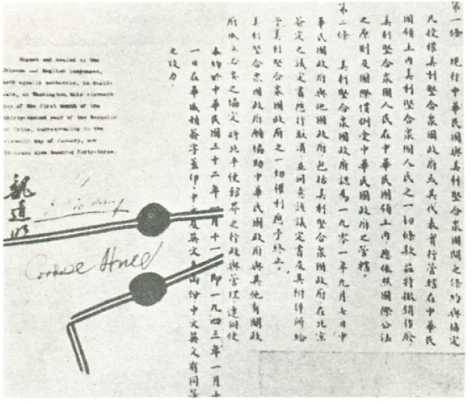 第一條 現行中華民國與美利堅合眾國間之條約與協定
凡授權美利堅合眾國政府或其代表實行管轄在中華民
國領土內美利堅合眾國人民之一切條款茲特撤銷作廢
美利堅合眾國人民在中華民國領土內應依照國際公法
之原則及國際慣例受中華民國政府之管轄。
第二條 美利堅合眾國政府認為一九零一年九月七日中
華民國政府與他國政府包括美利堅合眾國政府在北京
簽定之議定書應行取消並同意該議定書及其附件所給
予美利堅合眾國政府之一切權利應予終止。
美利堅合眾國政府願協助中華民國政府與其他有關政
府成立必要之協定將北平使館界之行政與管理連同使
本約於中華民國三十二年 月十一 即一九四三年一月十
一日在華盛頓簽字蓋印。中 英文 兩份中文英文有同等
之效力
Signed and sealed in the
Chinese and English languages,
both equally authentic, in dupli-
cate, at Washington, this eleventh
day of the first month of the
thirty-second year of the Republic
of China, corresponding to the
eleventh day of January, one
thousand nine hundred forty-three.